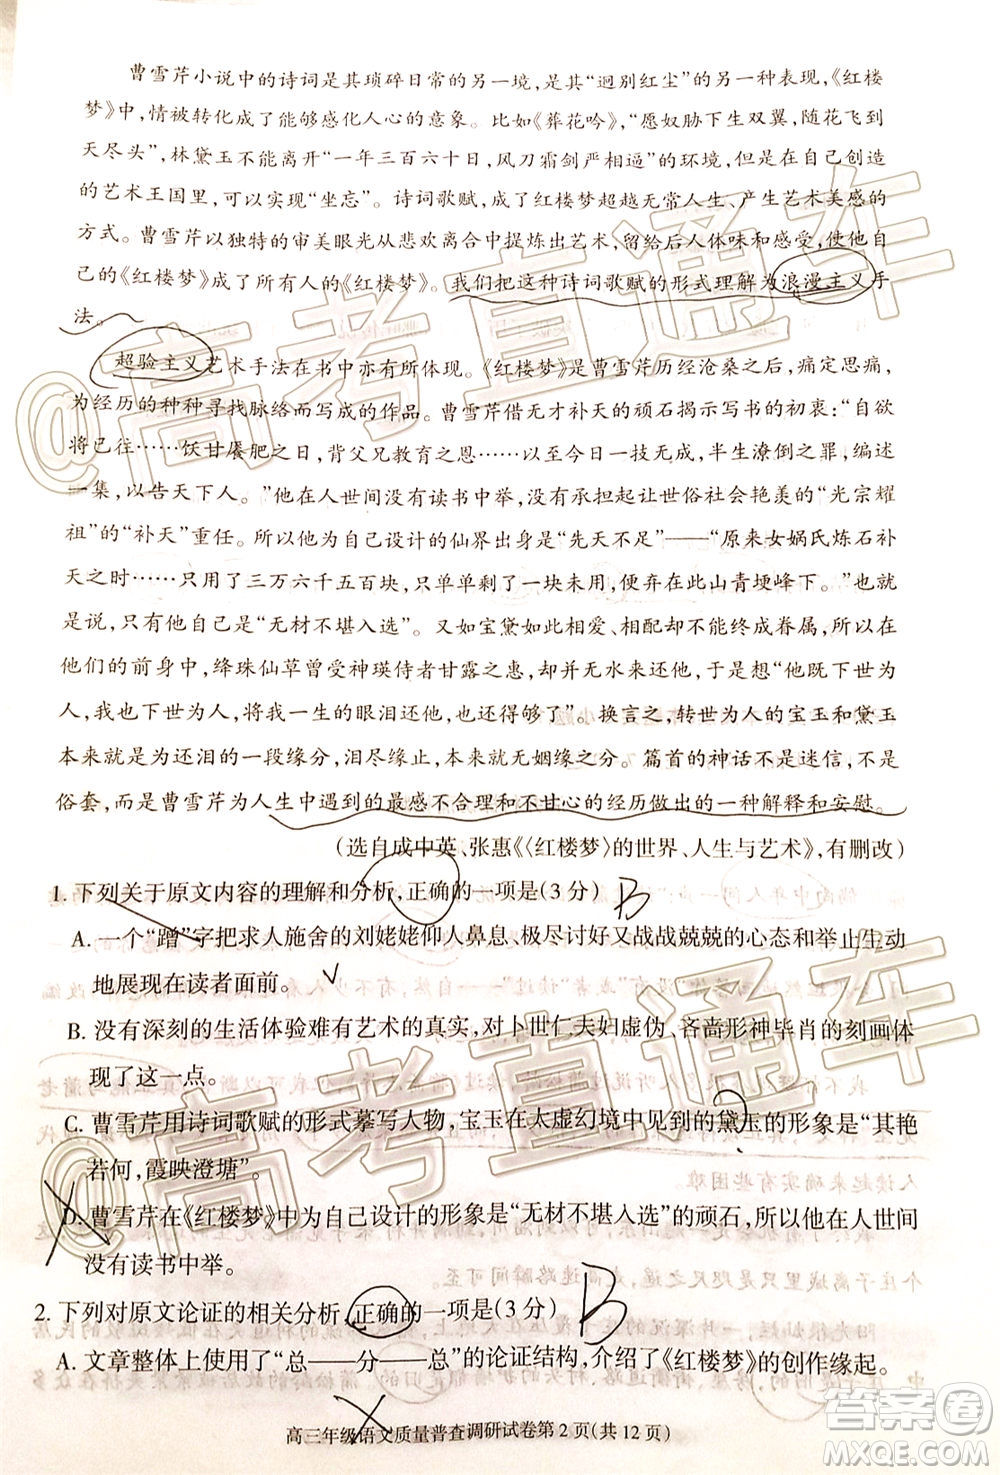 曹雪芹小说中的诗词是其琐碎日常的另一境，是其“迥别红尘”的另一种表现，《红楼
梦》中，情被转化成了能够感化人心的意象。比如《葬花吟》，“愿奴胁下生双翼，随花飞到
天尽头”，林黛玉不能离开“一年三百六十日，风刀霜剑严相逼”的环境，但是在自己创造
的艺术王国里，可以获得片刻的“坐忘”。诗词歌赋成了红楼梦超越无常人生、产生美感的
方式。曹雪芹以独特的审美眼光从悲欢离合中提炼出艺术，留给后人体味和感受，使他自
己的《红楼梦》成了所有人的《红楼梦》。我们把这种诗词歌赋的形式理解为浪漫主义手
法。
超验主义艺术手法在书中亦有所体现。《红楼梦》是曹雪芹历经沧桑之后，
为经历的种种寻找脉络而写成的作品。曹雪芹借无才补天的顽石揭示写书的初衷：“自欲
将已往……饫甘餍肥之日，背父兄教育之恩……以至今日一技无成，半生潦倒之罪，编述
一集，以告天下人。”他在人世间没有读书中举，没有承担起让世俗社会艳羡的“光宗耀
祖”的“补天”重任。所以，他为自己设计的仙界出身是“先天不足”——“原来女娲氏炼石补
天之时……只用了三万六千五百块，只单单剩了一块未用，便弃在此山青埂峰下。”也就是
说，他前世即是“无材不堪入选”。又如宝黛如此相爱、相配却不能终成眷属，所以，在
他们的前身中，绛珠仙草曾受神瑛侍者甘露之惠，却并无水来还他，于是想“他既下世为
人，我也下世为人，将我一生的眼泪还他，也还得够了”。换言之，转世为人的宝玉和黛玉
本来就是为还泪的一段缘分，泪尽缘止，本来就无姻缘之分。篇首的神话不是迷信，不是
俗套，而是曹雪芹为人生中遇到的最感不合理和不甘心的经历做出的一种解释和安慰。
（选自成中英、张惠《〈红楼梦〉的世界、人生与艺术》，有删改）
1. 下列关于原文内容的理解和分析，正确的一项是（3分） B
A. 一个“蹭”字把求人施舍的刘姥姥仰人鼻息、极尽讨好又战战兢兢的心态和举止生动
地展现在读者面前。
B. 没有深刻的生活体验难有艺术的真实，对卜世仁夫妇虚伪、吝啬形神毕肖的刻画体
现了这一点。
C. 曹雪芹用诗词歌赋的形式摹写人物，宝玉在太虚幻境中见到的黛玉的形象是“其艳
若何，霞映澄塘”。
D. 曹雪芹在《红楼梦》中为自己设计的形象是“无材不堪入选”的顽石，所以他在人世间
没有读书中举。
2. 下列对原文论证的相关分析，正确的一项是（3分） B
A. 文章整体上使用了“总——分——总”的论证结构，介绍了《红楼梦》的创作缘起。
高三年级语文质量普查调研试卷第2页（共12页）
@高考直通车
@高考直通车
答案圈
MXQE.COM